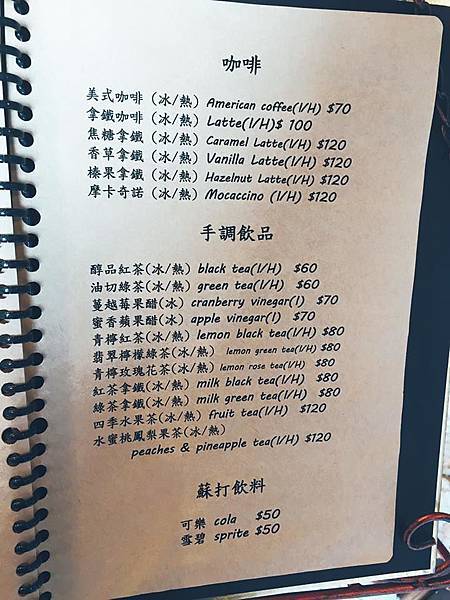 咖啡
美式咖啡 (冰/熱) American coffee(I/H) $70
拿鐵咖啡 (冰/熱) Latte(I/H)$ 100
焦糖拿鐵 (冰/熱) Caramel Latte(I/H) $120
香草拿鐵 (冰/熱) Vanilla Latte(I/H) $120
榛果拿鐵 (冰/熱) Hazelnut Latte(I/H) $120
摩卡奇諾 (冰/熱) Mocaccino (I/H) $120
手調飲品
醇品紅茶(冰/熱) black tea(I/H) $60
油切綠茶(冰/熱) green tea(I/H) $60
蔓越莓果醋(冰) cranberry vinegar(I) $70
蜜香蘋果醋(冰) apple vinegar(I) $70
青檸紅茶(冰/熱) lemon black tea(I/H) $80
翡翠檸檬綠茶(冰/熱) lemon green tea(I/H) $80
青檸玫瑰花茶(冰/熱) lemon rose tea(I/H) $80
紅茶拿鐵(冰/熱) milk black tea(I/H) $80
綠茶拿鐵(冰/熱) milk green tea(I/H) $80
四季水果茶(冰/熱) fruit tea(I/H) $120
水蜜桃鳳梨果茶(冰/熱)
peaches & pineapple tea(I/H) $120
蘇打飲料
可樂 cola $50
雪碧 sprite $50